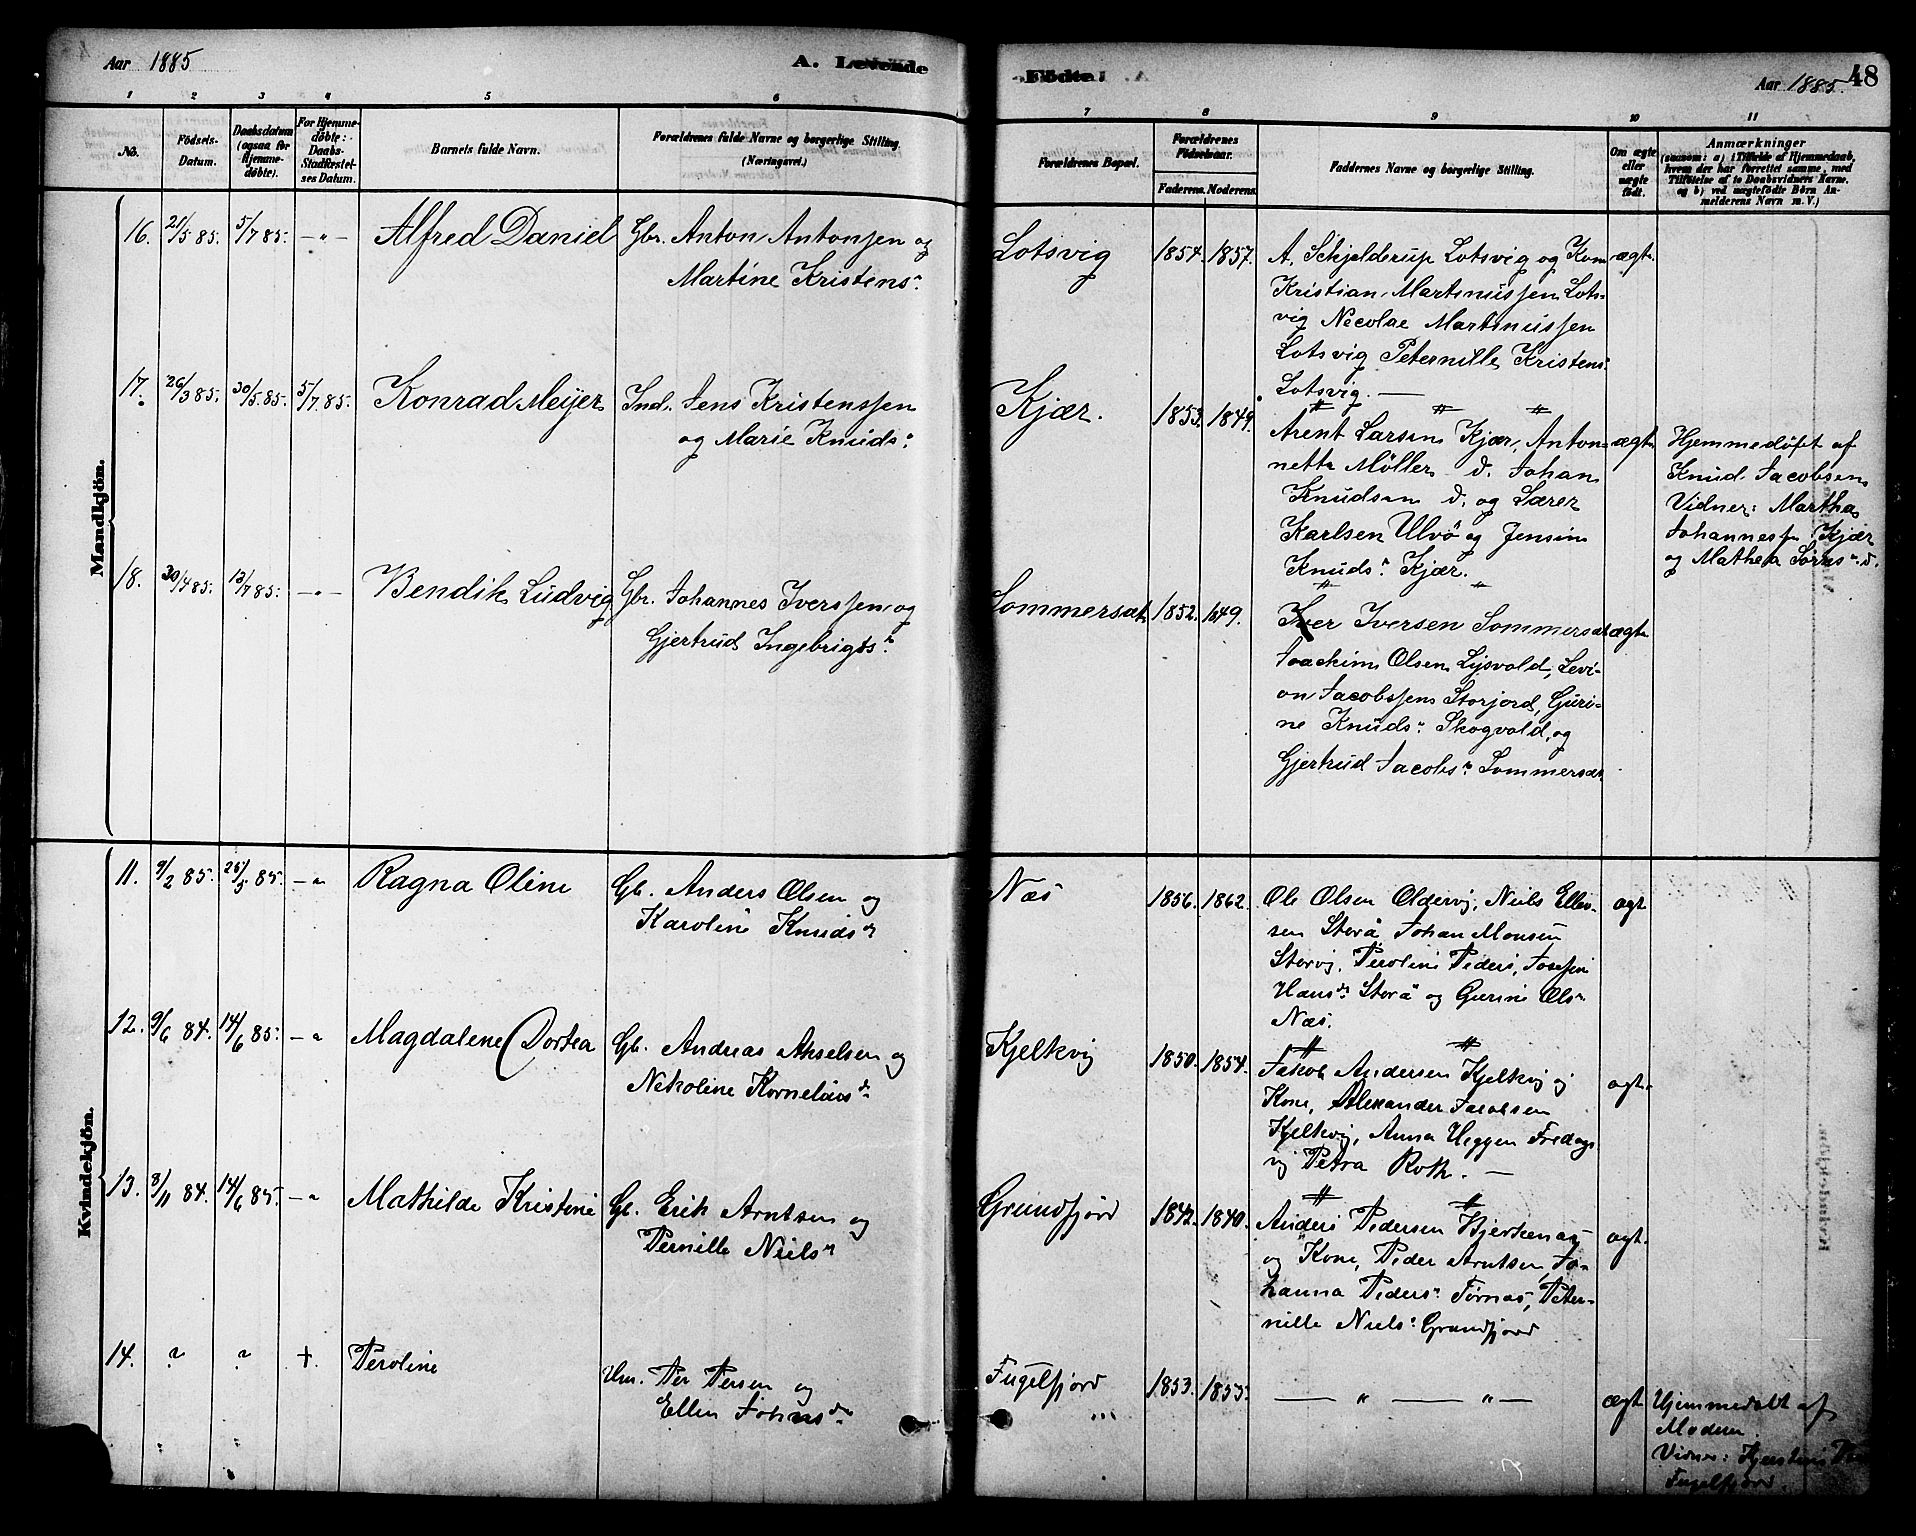 Aar 1885
A. Levende
Fødte.
Aar 1885.
48
1 2 3 4 5 6 7 8 9 10 11
No.
Födsels-Datum.
Daabsdatum (ogsaa for Hjemme-døbte).
For Hjemme-døbte: Daabs-Stadfæstel-ses Datum.
Barnets fulde Navn.
Forældrenes fulde Navne og borgerlige Stilling. (Næringsvei.)
Forældrenes Bopæl.
Forældrenes Födselsaar.
Faderens. Moderens.
Faddernes Navne og borgerlige Stilling.
Om ægte eller uægte født.
Anmærkninger
(saasom: a) i Tilfælde af Hjemmedaab, hvem der har forrettet samme, med Tilføielse af to Daabsvidners Navne. og b) ved uægtefødte Børn An-melderens Navn m. V.)
Mandkjön.
16. 21/5 85. 5/7 85. -"- Alfred Daniel Gbr. Anton Antonsen og
Martine Kristens.
Lotsvig 1854. 1857. A. Schjelderup Lotsvig og Kone ægte
Kristian Martinussen Lots-
vig Necolae Martinussen
Lotsvig Peternille Kristens.
Lotsvig. —
17. 26/3 85. 30/5 85. 5/7 85. Konrad Meyer Ind. Jens Kristenssen
og Marie Knuds.
Kjær. 1853. 1849. Arent Larsen Kjær, Anton- ægte
nette Möller d. Johan
Knudsen d. og Lærer
Karlsen Ulvö og Jensine
Knuds. Kjær.
Hjemmedöpt af
Knud Jacobsen
Vidner: Martha
Johannesse Kjær
og Mathea Sörens. d.
18. 30/4 85. 12/7 85. -"- Bendik Ludvig Gbr. Johannes Iverssen og
Gjertrud Ingebrigts.
Sommerset 1852. 1849. Iver Iversen Sommerset ægte
Joachim Olsen Lysvold, Levi-
on Jacobssen Storjord, Guri-
ne Knuds. Skogvold, og
Gjertrud Jacobs. Sommerset
Kvindekjön.
11. 9/2 85. 25/5 85. -"- Ragna Oline Gb. Anders Olsen og
Karoline Knudsdr
Næs 1856. 1862. Ole Olsen Oldervig, Neils Ellev- ægt
sen Storå Johan Monsen
Storvig, Peroline Peders, Josefine
Hansdr Storå og Gurine Ols.
Næs.
12. 9/6 84. 14/6 85. -"- Magdalene Dortea Gb. Andreas Akselsen og
Nekoline Korneliusdr
Kjelkvig 1850. 1854. Jakob Andersen Kjelkvig og ægt.
Kone, Alexander Jacobsen
Kjelkvig, Anna Heggen
og Petra Roth. —
13. 8/11 84. 14/6 85. -"- Mathilde Kristine Gb. Erik Arntsen og
Pernille Nielsdr
Grundfjord 1842. 1840. Anders Pedersen Hjertenæs ægt.
og Kone, Peder Arntsen, Jo-
hanna Peders. Tørnæs, Peter-
nille Niels. Grundfjord
14. " " +. Peroline Per Persen og
Ellen Johnsdr
Fugelfjord 1853. 1855. — " — " — ægt
Hjemmedøbt af
Moderen.
Vidner:
Fugelfjord.